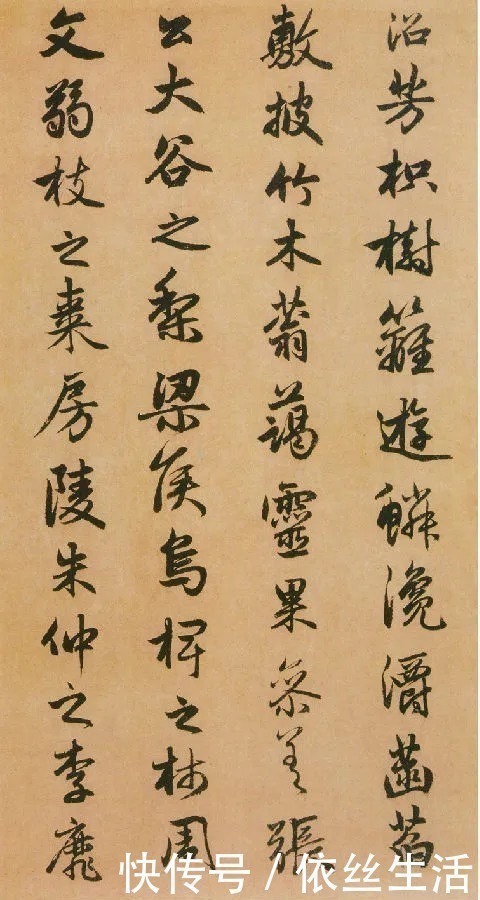 沼芳枳樹籬遊鱗瀺灂菡萏
敷披竹木蓊藹靈果參差張
公大谷之梨梁侯烏椑之柿周
文弱枝之棗房陵朱仲之李靡
快传号 / 依丝生活